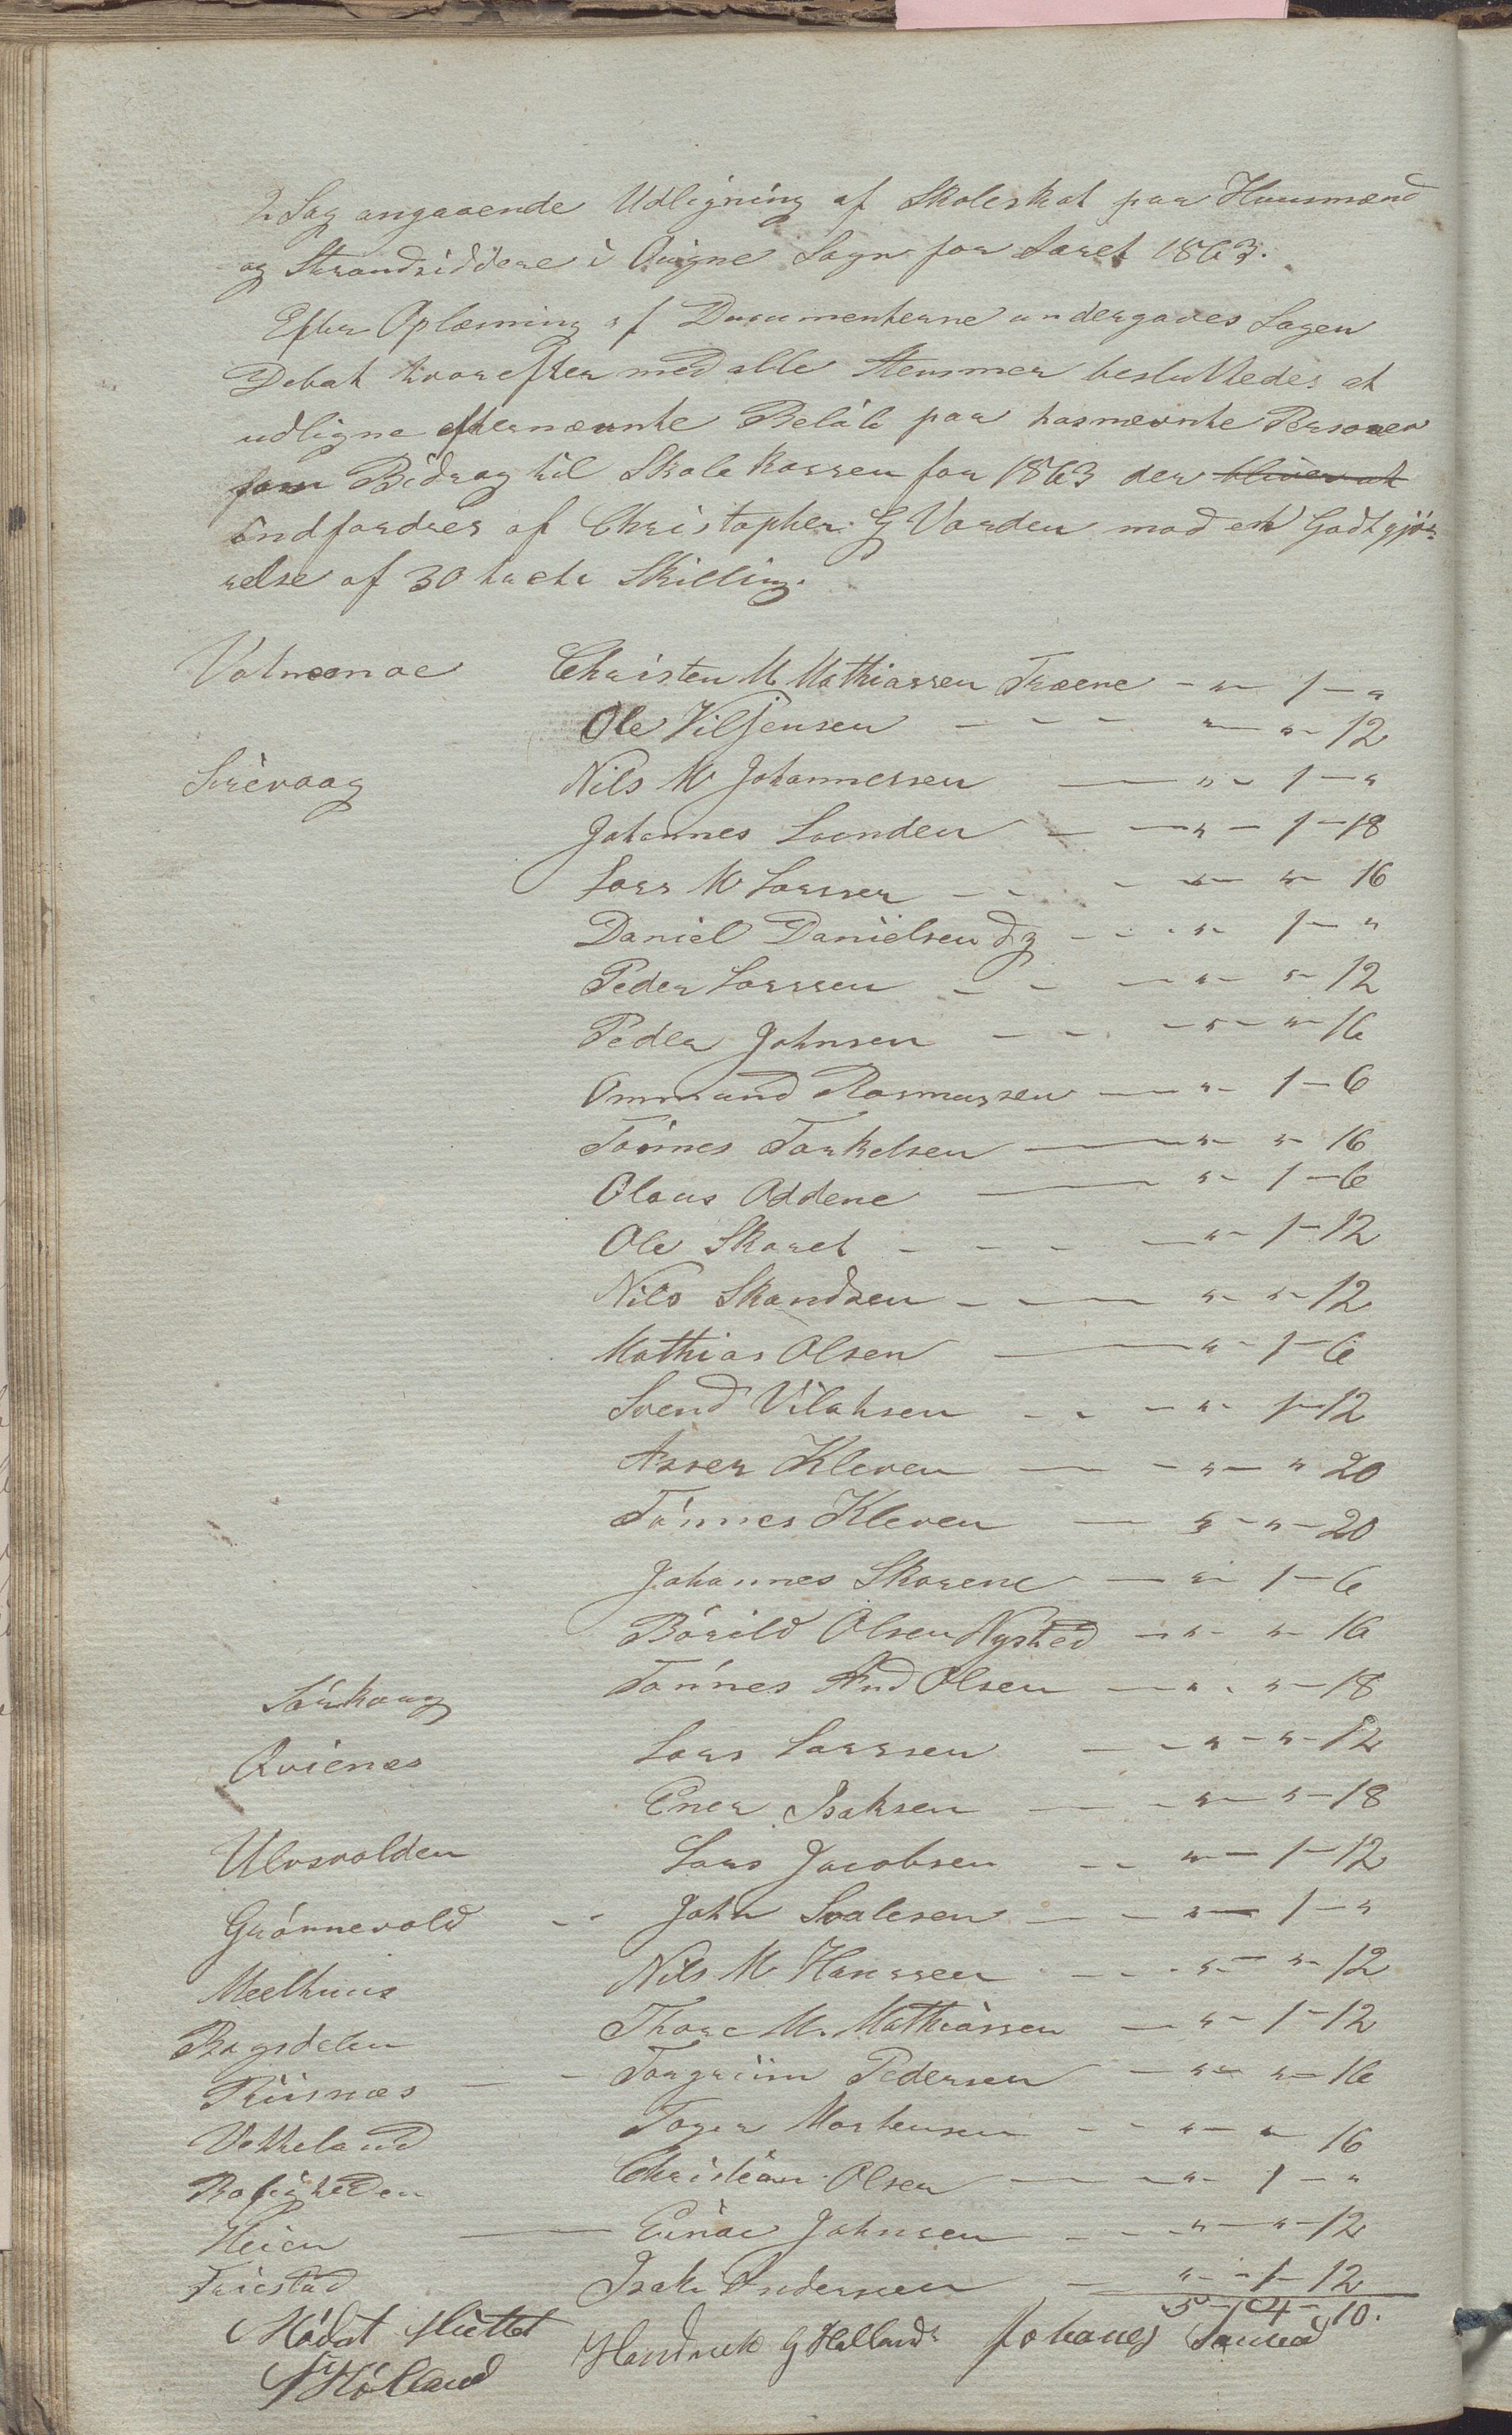 2 Sag angaaende Udligning af Skoleskat paa Huusmænd
og Strandsiddere i Ougne Sogn for Aaret 1863.
Efter Oplæsning af Documenterne undergaves Sagen
Debat hvorefter med alle Stemmer besluttedes at
udligne efternævnte Beløb paa hosnævnte Personer
som Bidrag til Skolekassen for 1863 der bliver at
indfordres af Christopher G Varden mod en Godtgjø-
relse af 30 Skilling.
Vatnemoe Christen M Mathiassen Træene - " - 1 - "
Ole Villjensen - - - " - " - 12
Sirevaag Nils M Johannessen - " - 1 - "
Johannes Sunden - - " - 1 - 18
Lars M Larssen - - - " - " - 16
Daniel Danielsen d.y. - - - " - 1 - "
Peder Larssen - - - " - " - 12
Peder Johnsen - - - " - " - 16
Ommund Rasmussen - " - 1 - 6
Tønnes Torkelsen - " - " - 16
Olaus Oddene - " - 1 - 6
Ole Skaret - - - - " - 1 - 12
Nils Skandsen - - " - " - 12
Mathias Olsen - " - 1 - 6
Svend Vilatsen - - - " - 1 - 12
Asser Kleven - - " - " 20
Tønnes Kleven - " - " - 20
Johannes Skarene - " - 1 - 6
Bórild Olsen Nysted - " - " - 16
Tønnes And Olsen - " - " - 18
Qvienes Lars Larssen - - " - " - 12
Ener Isaksen - - " - " - 18
Ulvsvolden Lars Jacobsen - - " - 1 - 12
Grónnevold - - John Svalesen - - " - 1 - "
Meelhuus Nils M Hanssen - - - " - " - 12
Bogsdelen Thore M. Mathiassen - " - 1 - 12
Riisnæs - - Torgriim Pedersen - " - " - 16
Vetteland Toger Mortensen - " - " 16
Christian Olsen - - " - 1 - "
Heien - Einar Johnsen - - - " - " - 12
Isak Andersen - " - 1 - 12
5 - 4 - 10.